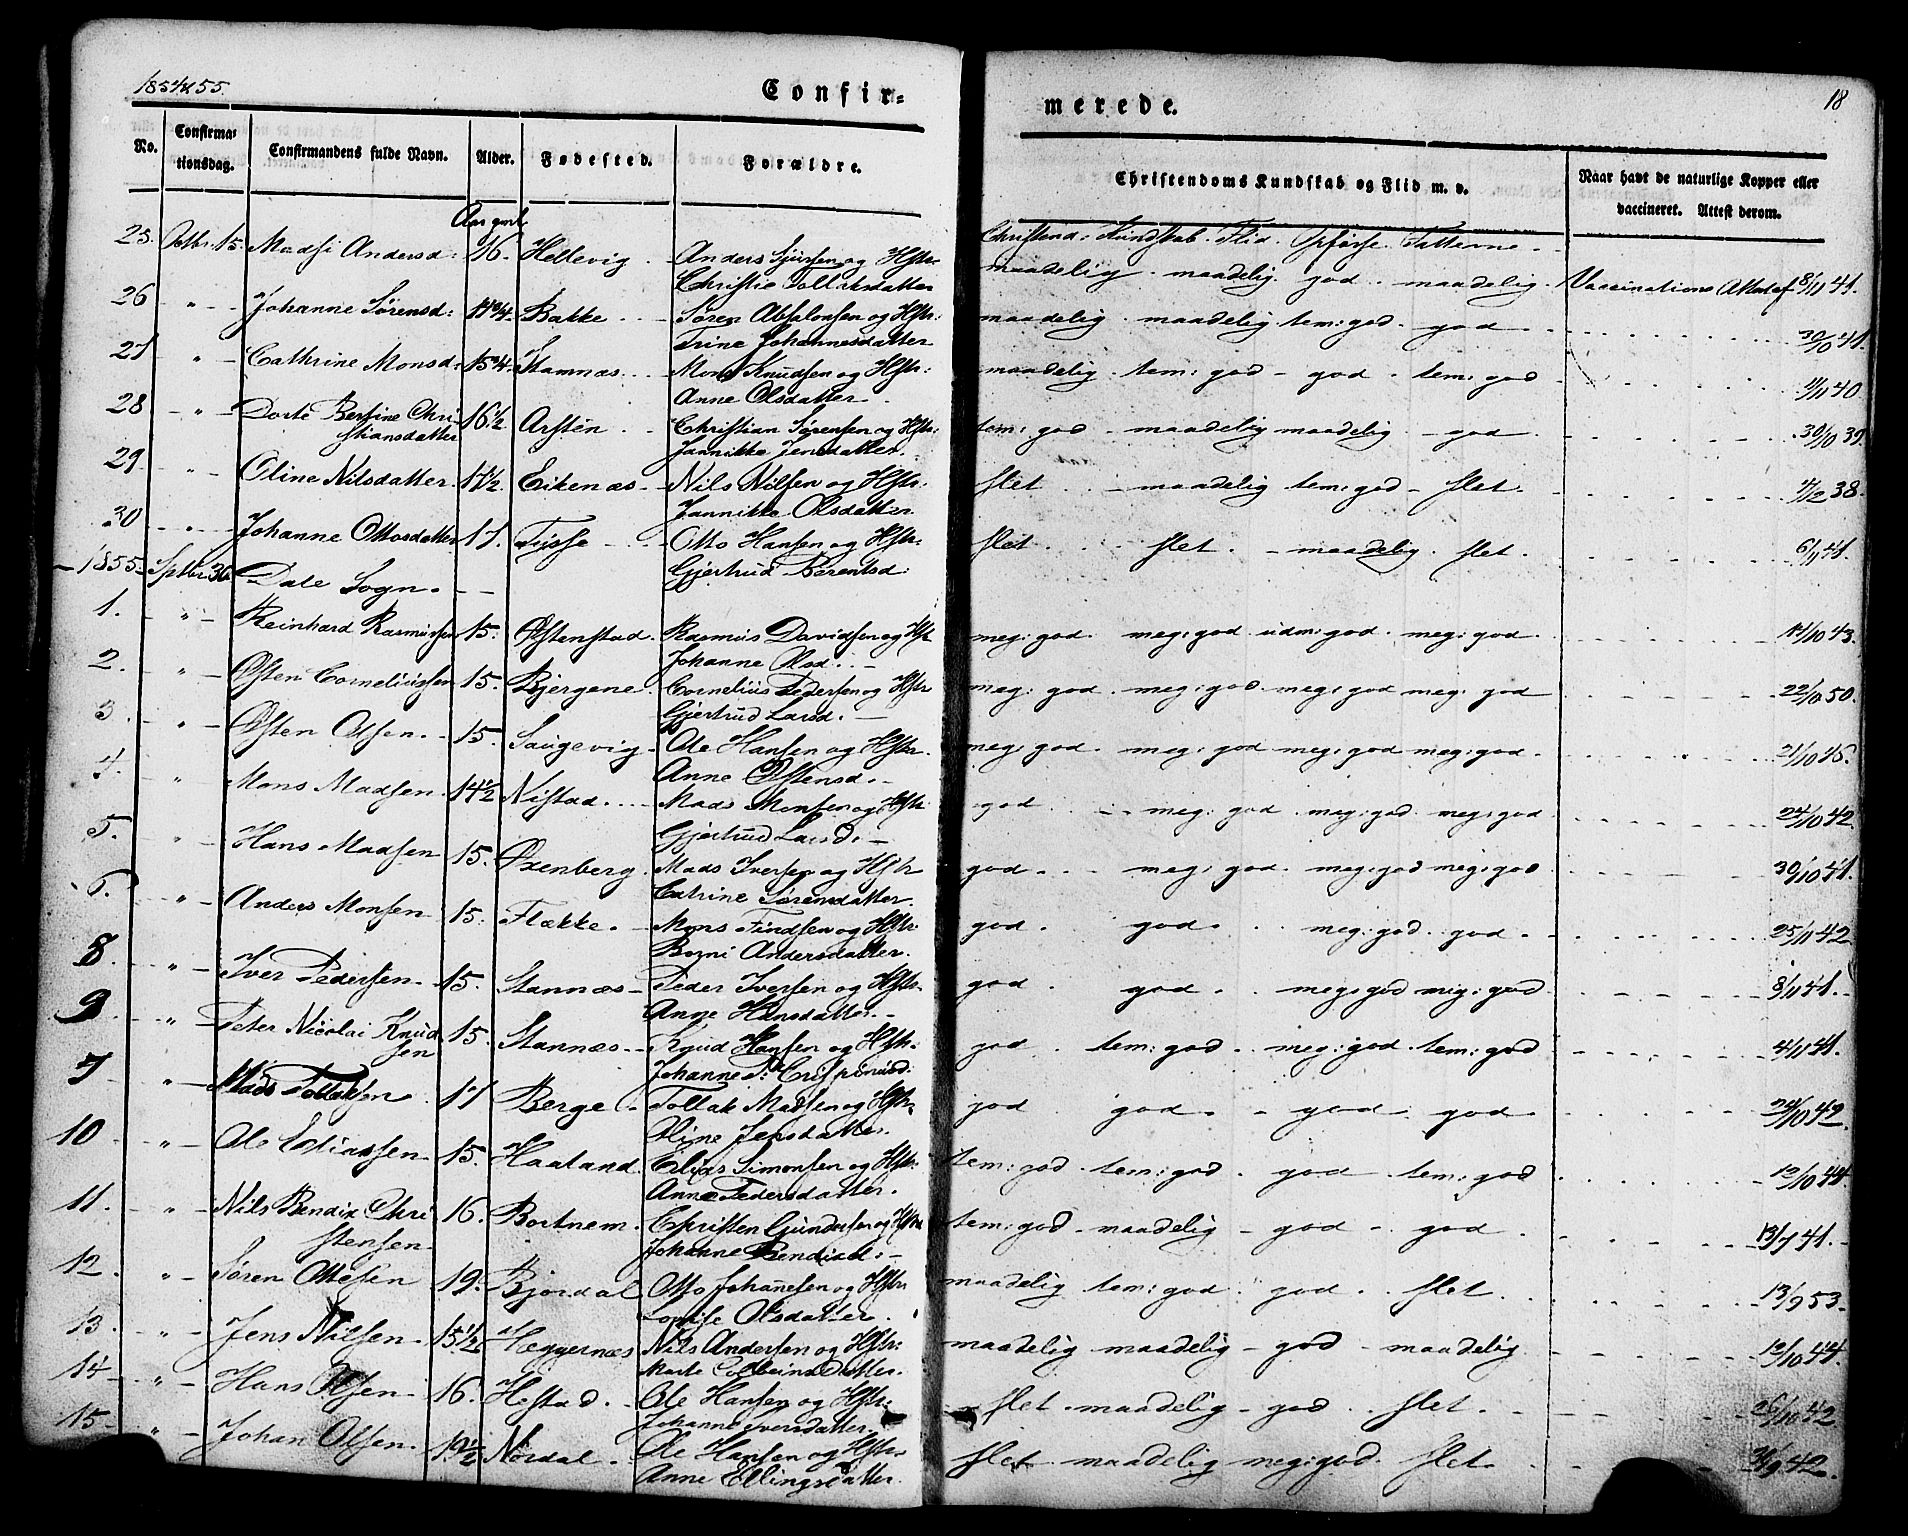 1854 & 55.
Confir-
merede.
18
No.
Confirma-
tionsdag.
Confirmandens fulde Navn.
Alder.
Fødested.
Forældre.
Christendoms Kundskab og Flid m. v.
Naar havt de naturlige Kopper eller
vaccineret. Attest derom.
Aar gml.
Christend: Kundskab. Flid. Opførse. Fatterne
25. Octbr. 15. Madsi Andersd: 16. Hellevig Anders Sjursen og Hstr: maadelig. maadelig. god. maadelig. Vaccinations Attest af 8/11 41.
Christie Tollaksdatter
26 " Johanne Sørensd: 17 3/4 Bakke Søren Absalonsen og Hstr: maadelig. maadelig tem: god. god 30/10 41.
Trine Johannesdatter
27 " Cathrine Monsd: 15 3/4 Stamnæs Mons Knudsen og Hstr: maadelig. tem: god - god. tem: god 11/11 40
Anne Olsdatter
28 " Dorte Bertine Chri- 16 1/2 Arsten Christian Sørensen og Hstr: tem: god - maadelig maadelig - god 30/10 39.
stiansdatter Jannikke Jensdatter
29 " Oline Nilsdatter. 17 1/2. Eikenæs Nils Nilsen og Hstr: slet maadelig tem: god - slet. 38.
Jannikke Olsdatter
30 " Johanne Ottosdatter 17. Tysse Otto Hansen og Hstr: slet. slet. - maadelig. slet. 6/11 41.
Gjertrud Berentsd:
1855. Sptbr. 30 Dale Sogn.
1. " Reinhard Rasmussen 15. Østenstad. Rasmus Davidsen og Hstr meg: god. meg: god udm: god. meg: god. 14/10 43.
Johanne Olsd.
2. " Østen Corneliussen 15. Bjergene. Cornelius Pedersen og Hstr meg: god. meg: god meg: god meg: god 22/10 50.
Gjertrud Larsd.
3. " Østen Olsen. 15. Saugevig Ole Hansen og Hstr. meg: god. meg: god meg: god meg: god. 21/10 45.
Anne Østensd.
4. " Mons Madsen. 14 1/2 Nistad. Mads Monsen og Hstr god meg: god meg: god meg: god 24/10 42.
Gjertrud Larsd.
5. " Hans Madsen 15. Øxenberg. Mads Iversen og Hstr god meg: god. meg: god meg: god 30/10 41.
Catrine Sørensdatter.
6. " Anders Monsen 15. Flække. Mons Findsen og Hstr god. god. meg: god. god. 25/11 42
Bogni Andersdatter.
8. " Iver Pedersen 15. Stannæs Peder Iversen og Hstr. god. god. meg: god meg: god. 8/11 41.
Anne Hansdatter.
9. " Peter Nicolai Knud- 15. Stannæs Knud Hansen og Hstr. god. tem: god. meg: god. tem: god 4/11 41.
sen Johanne
7 " Mads Tollaksen 17 Berge. Tollak Madsen og Hstr. god god. god god. 24/10 42.
Oline Jensdatter.
10 " Ole Eliassen. 15. Haaland. Elias Simonsen og Hstr: tem: god. tem: god. god tem: god 12/10 44.
Anne Pedersdatter.
11. " Nils Bendix Chri- 16. Bortnem. Christen Gundersen og Hstr tem: god maadelig god. god 13/7 41.
stensen Johanne Bendixd:
12. " Søren Ottesen 19. Bjordal Otto Johanesen og Hstr maadelig tem: god. god. slet. 13/9 53.
Lovise Olsdatter.
13. " Jens Nilsen 15 1/2 Heggernæs Nils Andersen og Hstr: maadelig maadelig - god - maadelig 12/10 44.
Marte
14 " Hans Olsen 16. Hestad. Ole Hansen og Hstr: slet. maadelig - god. slet. 26/10 42
Johanne Iversdatter
15. " Johan Olsen. 19 1/2 Nordal. Ole Hansen og Hstr. slet maadelig meg: god. slet. 42.
Anne Ellingsdatter.